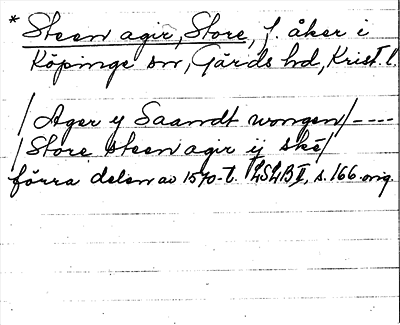 * Steen agir, Store, f. åker i
Köpinge sn, Gärds hd, Krist. l.
/ Ager y Saandt wongen / ----
/ Store steen agir ij ské /
förra delen av 1570-t. LSLB II, s. 166. orig.